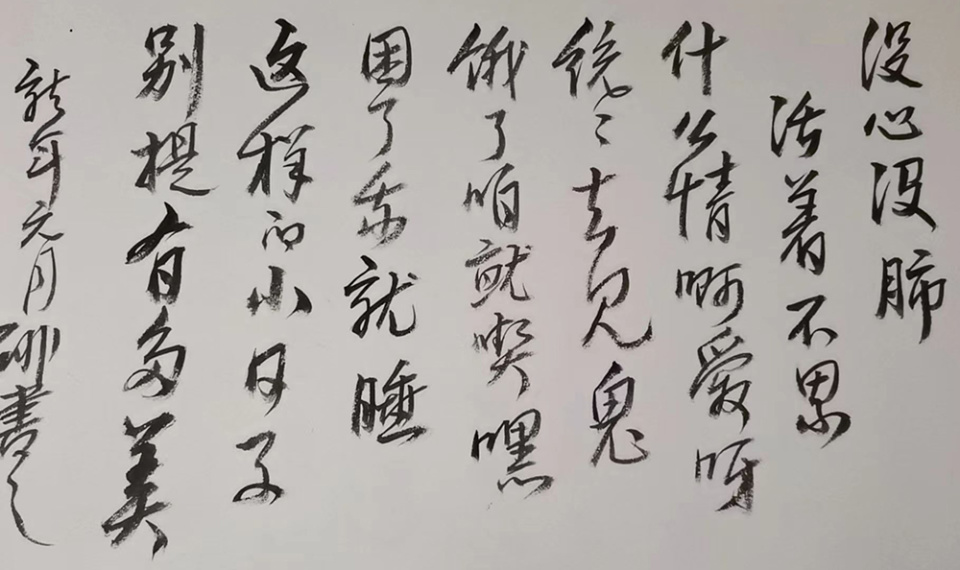 没心没肺
活着不累
什么情啊爱呀
统々去见鬼
饿了咱就喫嘿
困了就睡
这样的小日子
别提有多美
龙年元月书之